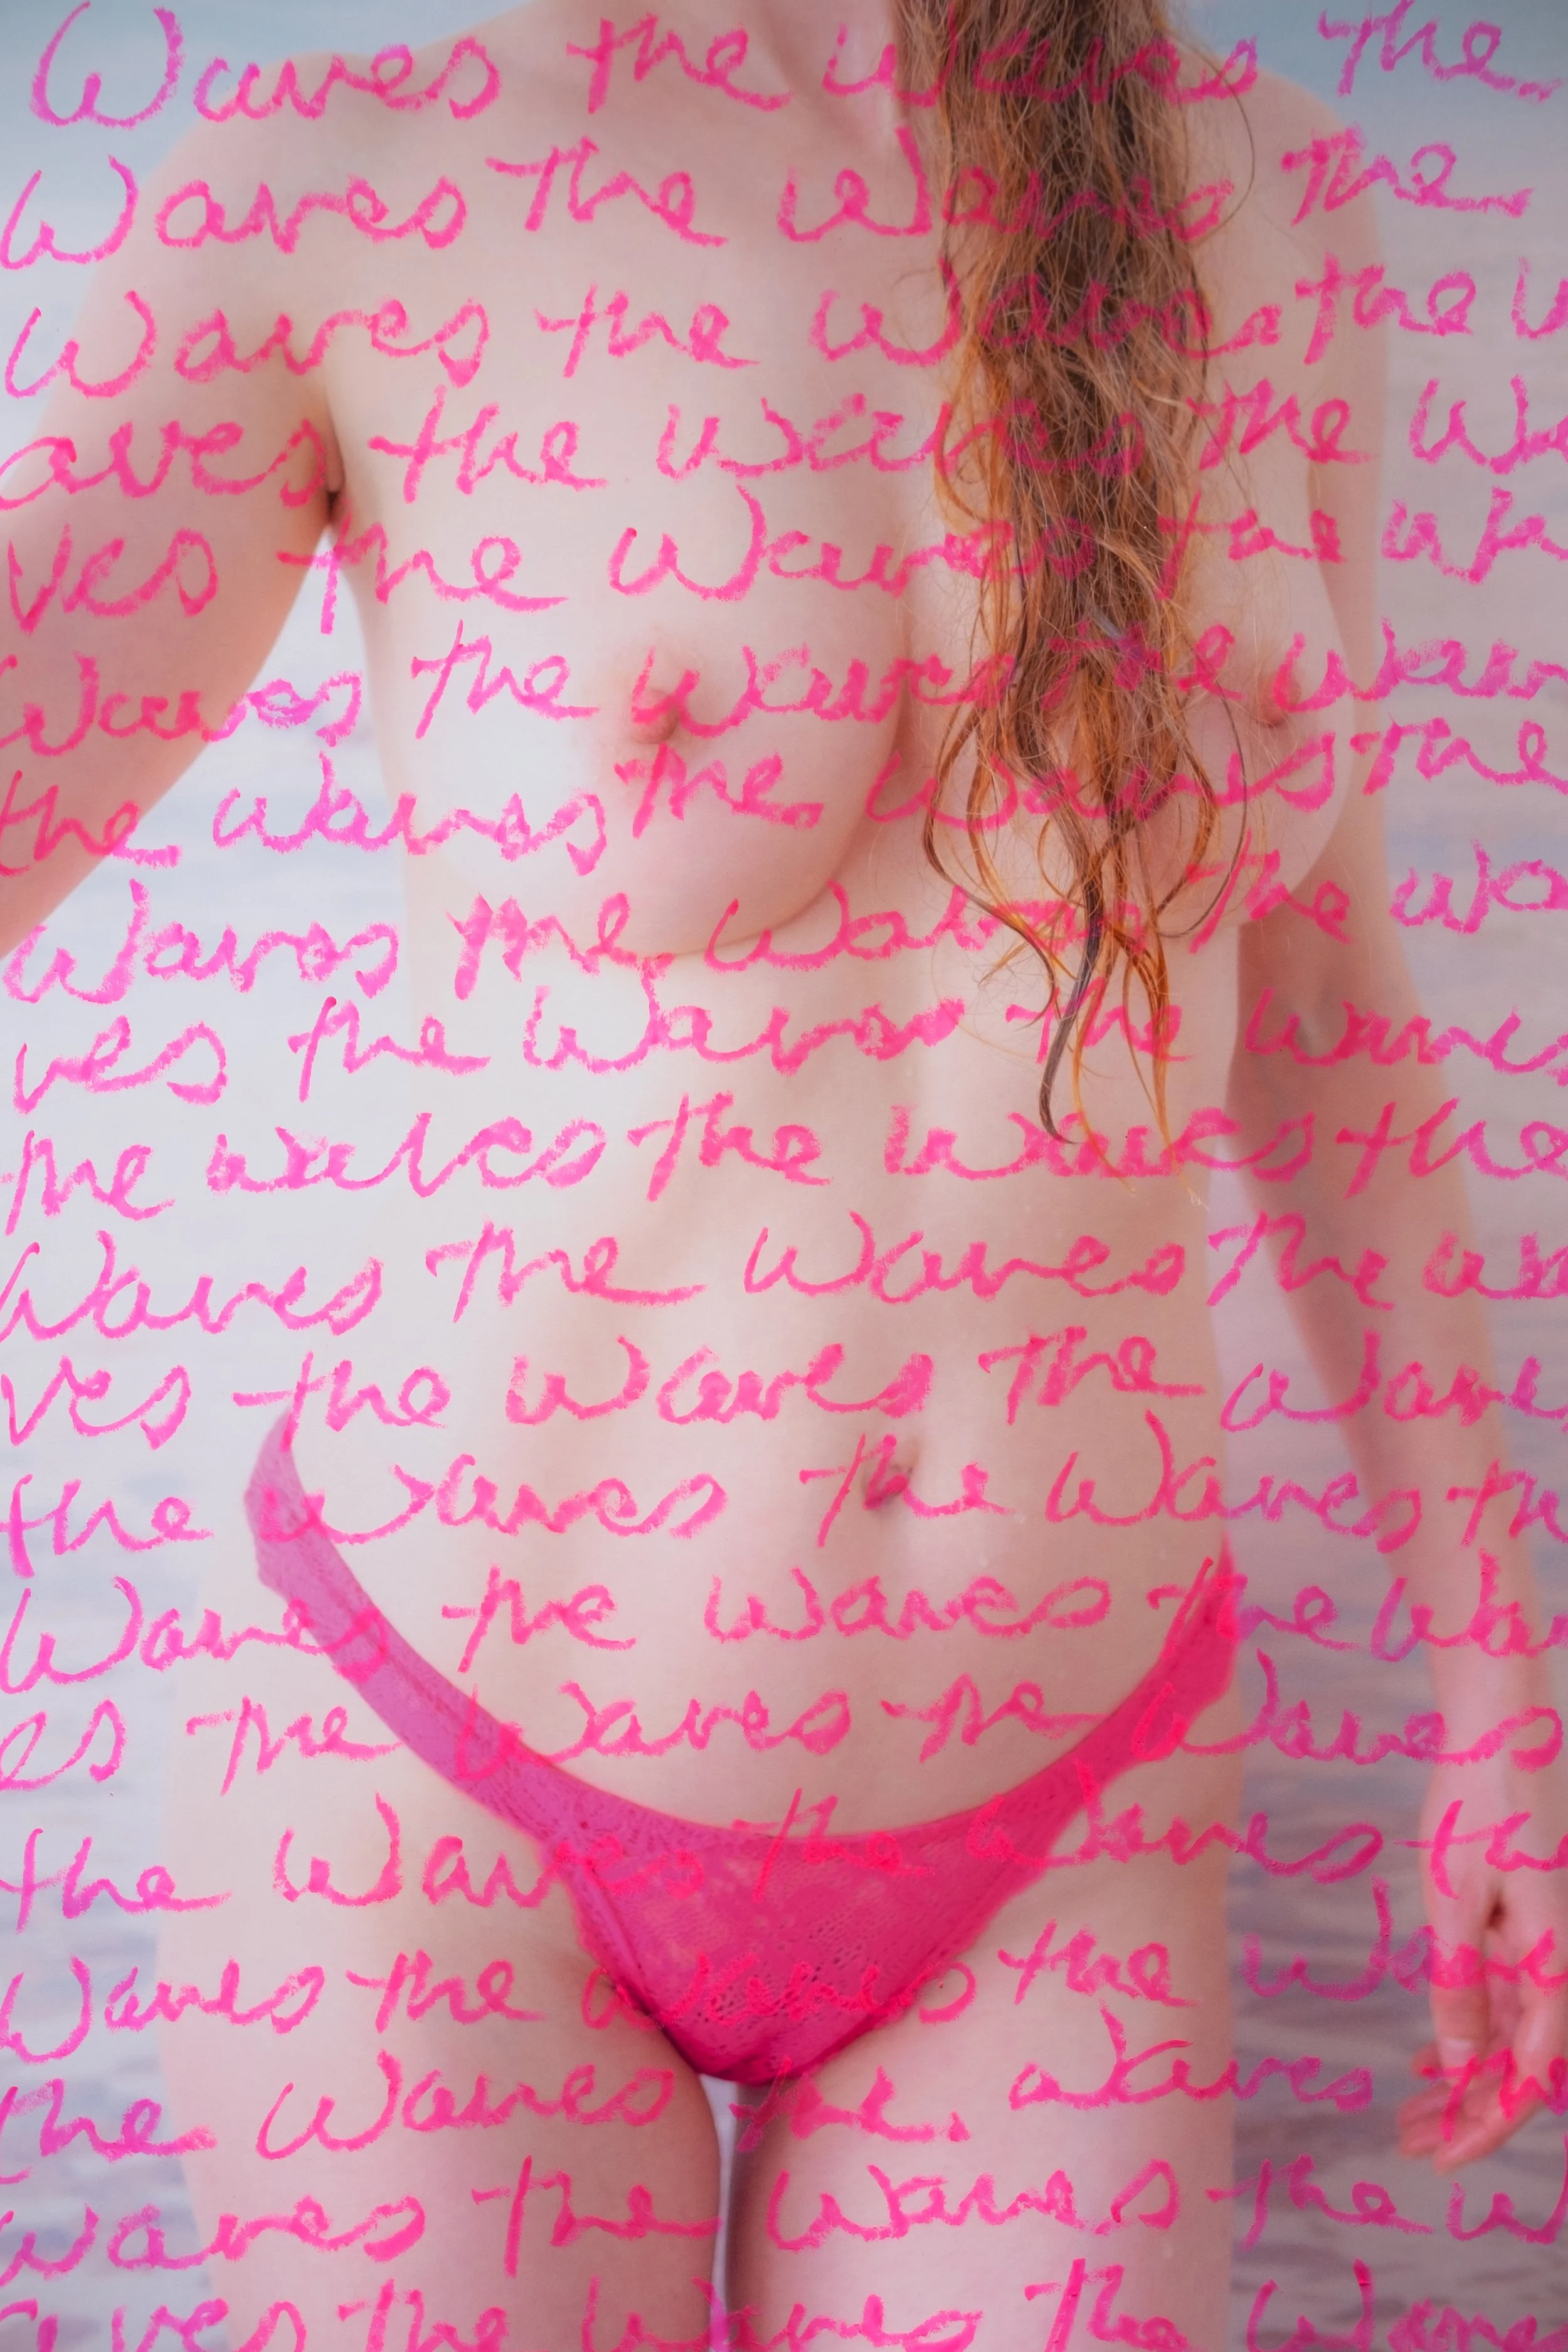 Waves the waves the
Waves the Waves the
Waves the Waves the W
aves the Waves the Wa
ves the Waves the wa
Waves the waves the wav
the waves the waves the
Waves the Waves the wa
ves the Waves the waves
the waves the waves the
Waves the Waves the wa
ves the Waves the wave
the Waves the Waves th
Waves the Waves the Wa
es the Waves the Waves
the Waves the Waves th
Waves the waves the Wav
the Waves the Waves the
Waves the Waves the W
aves the Waves the Wave